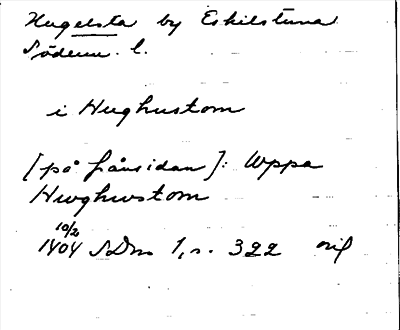 Hugelsta by Eskilstuna
Söderm. l.
i Hughustom
[på frånsidan]: Uppa
Hwghwstom
10/2
1404 SDns 1, s. 322 oril